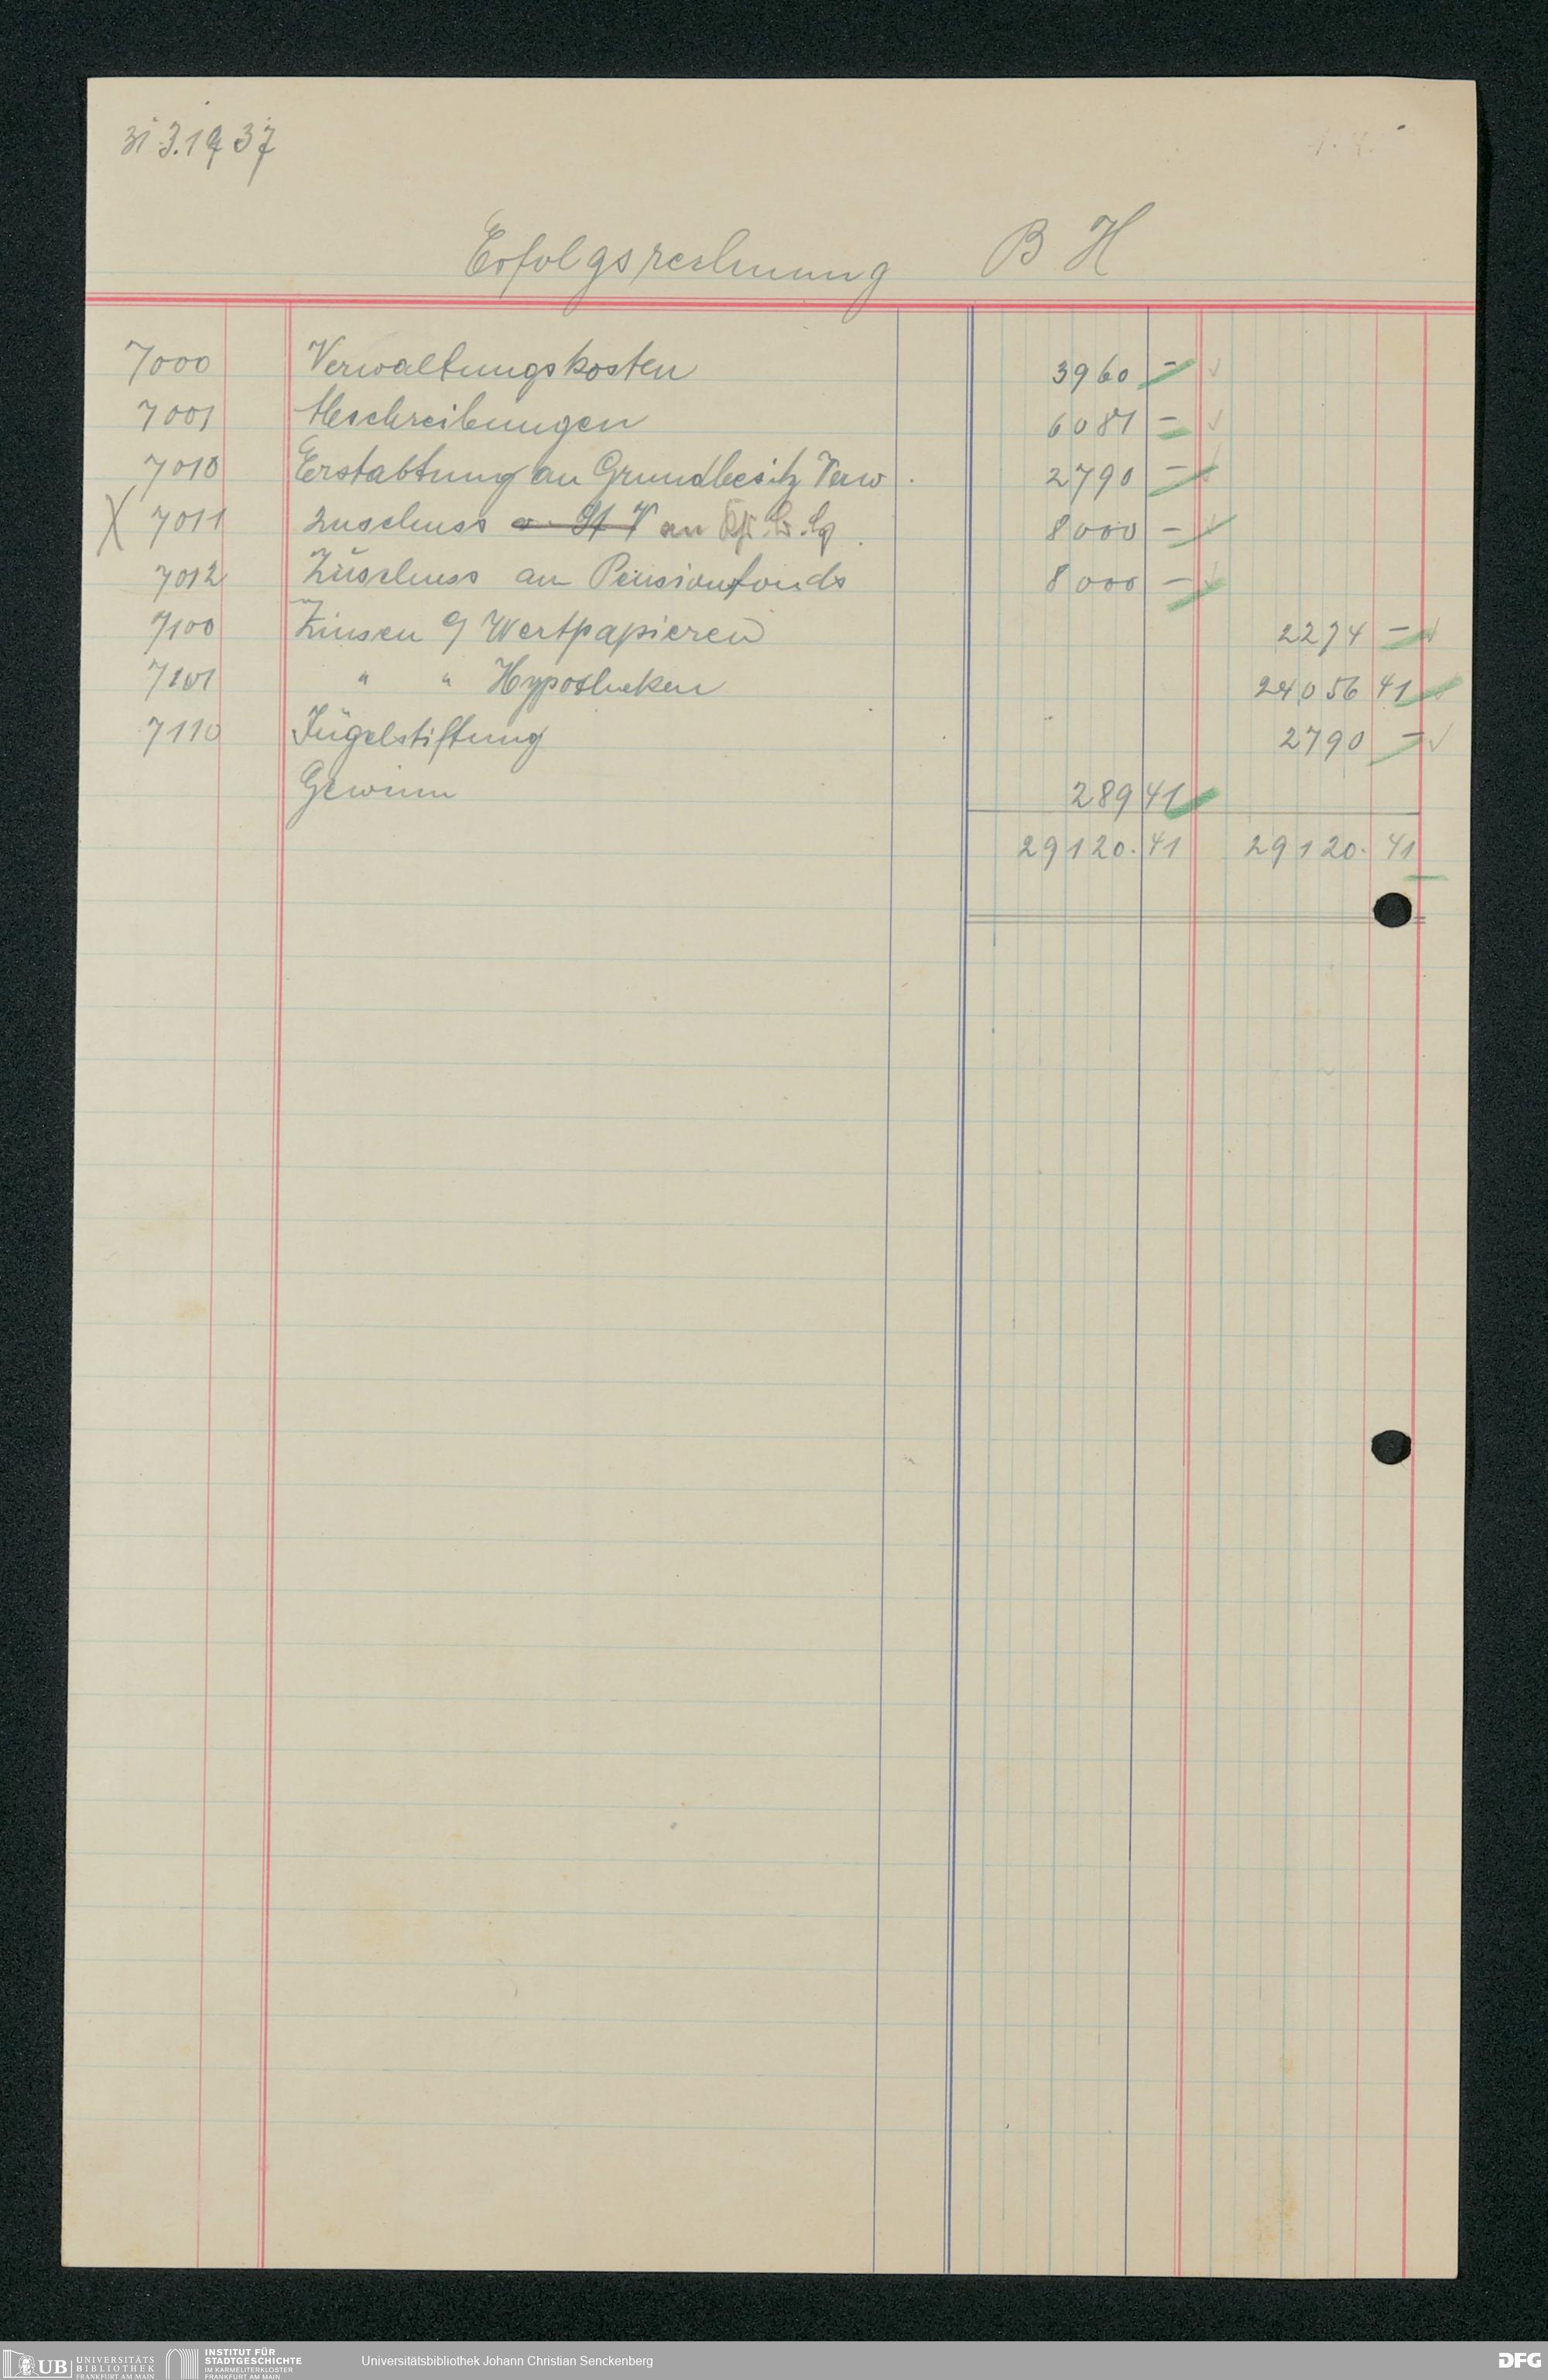 31.3.1937
Erfolgsrechnung B H
7000 Verwaltungskosten 3960 —
7001 Abschreibungen 6081 —
7010 Erstattung an Grundbesitz Verw. 2790 —
X 7011 Zuschuss an 8000 —
7012 Zuschuss an Pensionsfonds 8000 —
7100 Zinsen a/ Wertpapieren 2274 —
7101 " " Hypotheken 24056 41
7110 Jügelstiftung 2790 —
Gewinn 289 41
29120.41 29120.41
UB UNIVERSITÄTS
BIBLIOTHEK
FRANKFURT AM MAIN
INSTITUT FÜR
STADTGESCHICHTE
IM KARMELITERKLOSTER
FRANKFURT AM MAIN
Universitätsbibliothek Johann Christian Senckenberg
DFG